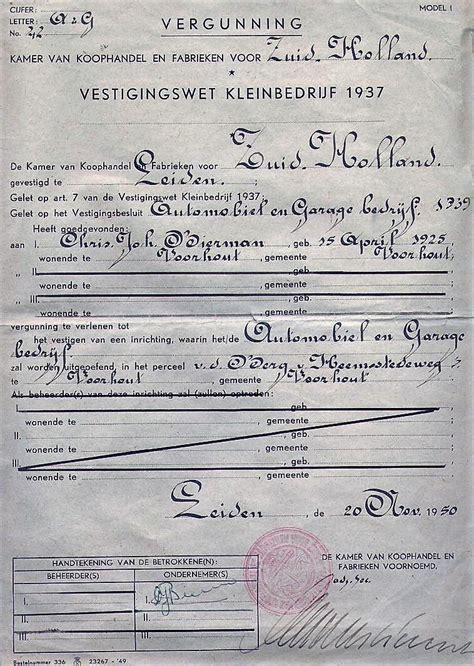 CIJFER:
LETTER: A & G
No. 22
MODEL I
VERGUNNING
KAMER VAN KOOPHANDEL EN FABRIEKEN VOOR Zuid-Holland.
★
VESTIGINGSWET KLEINBEDRIJF 1937
De Kamer van Koophandel en Fabrieken voor Zuid-Holland.
gevestigd te Leiden.
Gelet op art. 7 van de Vestigingswet Kleinbedrijf 1937;
Gelet op het Vestigingsbesluit Automobiel en Garage bedrijf. 1939
Heeft goedgevonden:
aan I. Chris. Joh. Bierman , geb. 15 April 1925
wonende te Voorhout , gemeente Voorhout
„ II. , geb.
wonende te , gemeente
„ III. , geb.
wonende te , gemeente
vergunning te verlenen tot
het vestigen van een inrichting, waarin het/de Automobiel en Garage
bedrijf
zal worden uitgeoefend, in het perceel v.d. Berg v. Heemstedeweg 7
te Voorhout , gemeente Voorhout
Als beheerder(s) van deze inrichting zal (zullen) optreden:
I. , geb.
wonende te , gemeente
II. , geb.
wonende te , gemeente
III. , geb.
wonende te , gemeente
Leiden , de 20 Nov. 1950
HANDTEKENING VAN DE BETROKKENE(N):
BEHEERDER(S) ONDERNEMER(S)
I. I.
II. II.
III. III.
DE KAMER VAN KOOPHANDEL EN
FABRIEKEN VOORNOEMD,
Adj. Sec.
Bestelnummer 336 23267 - '49